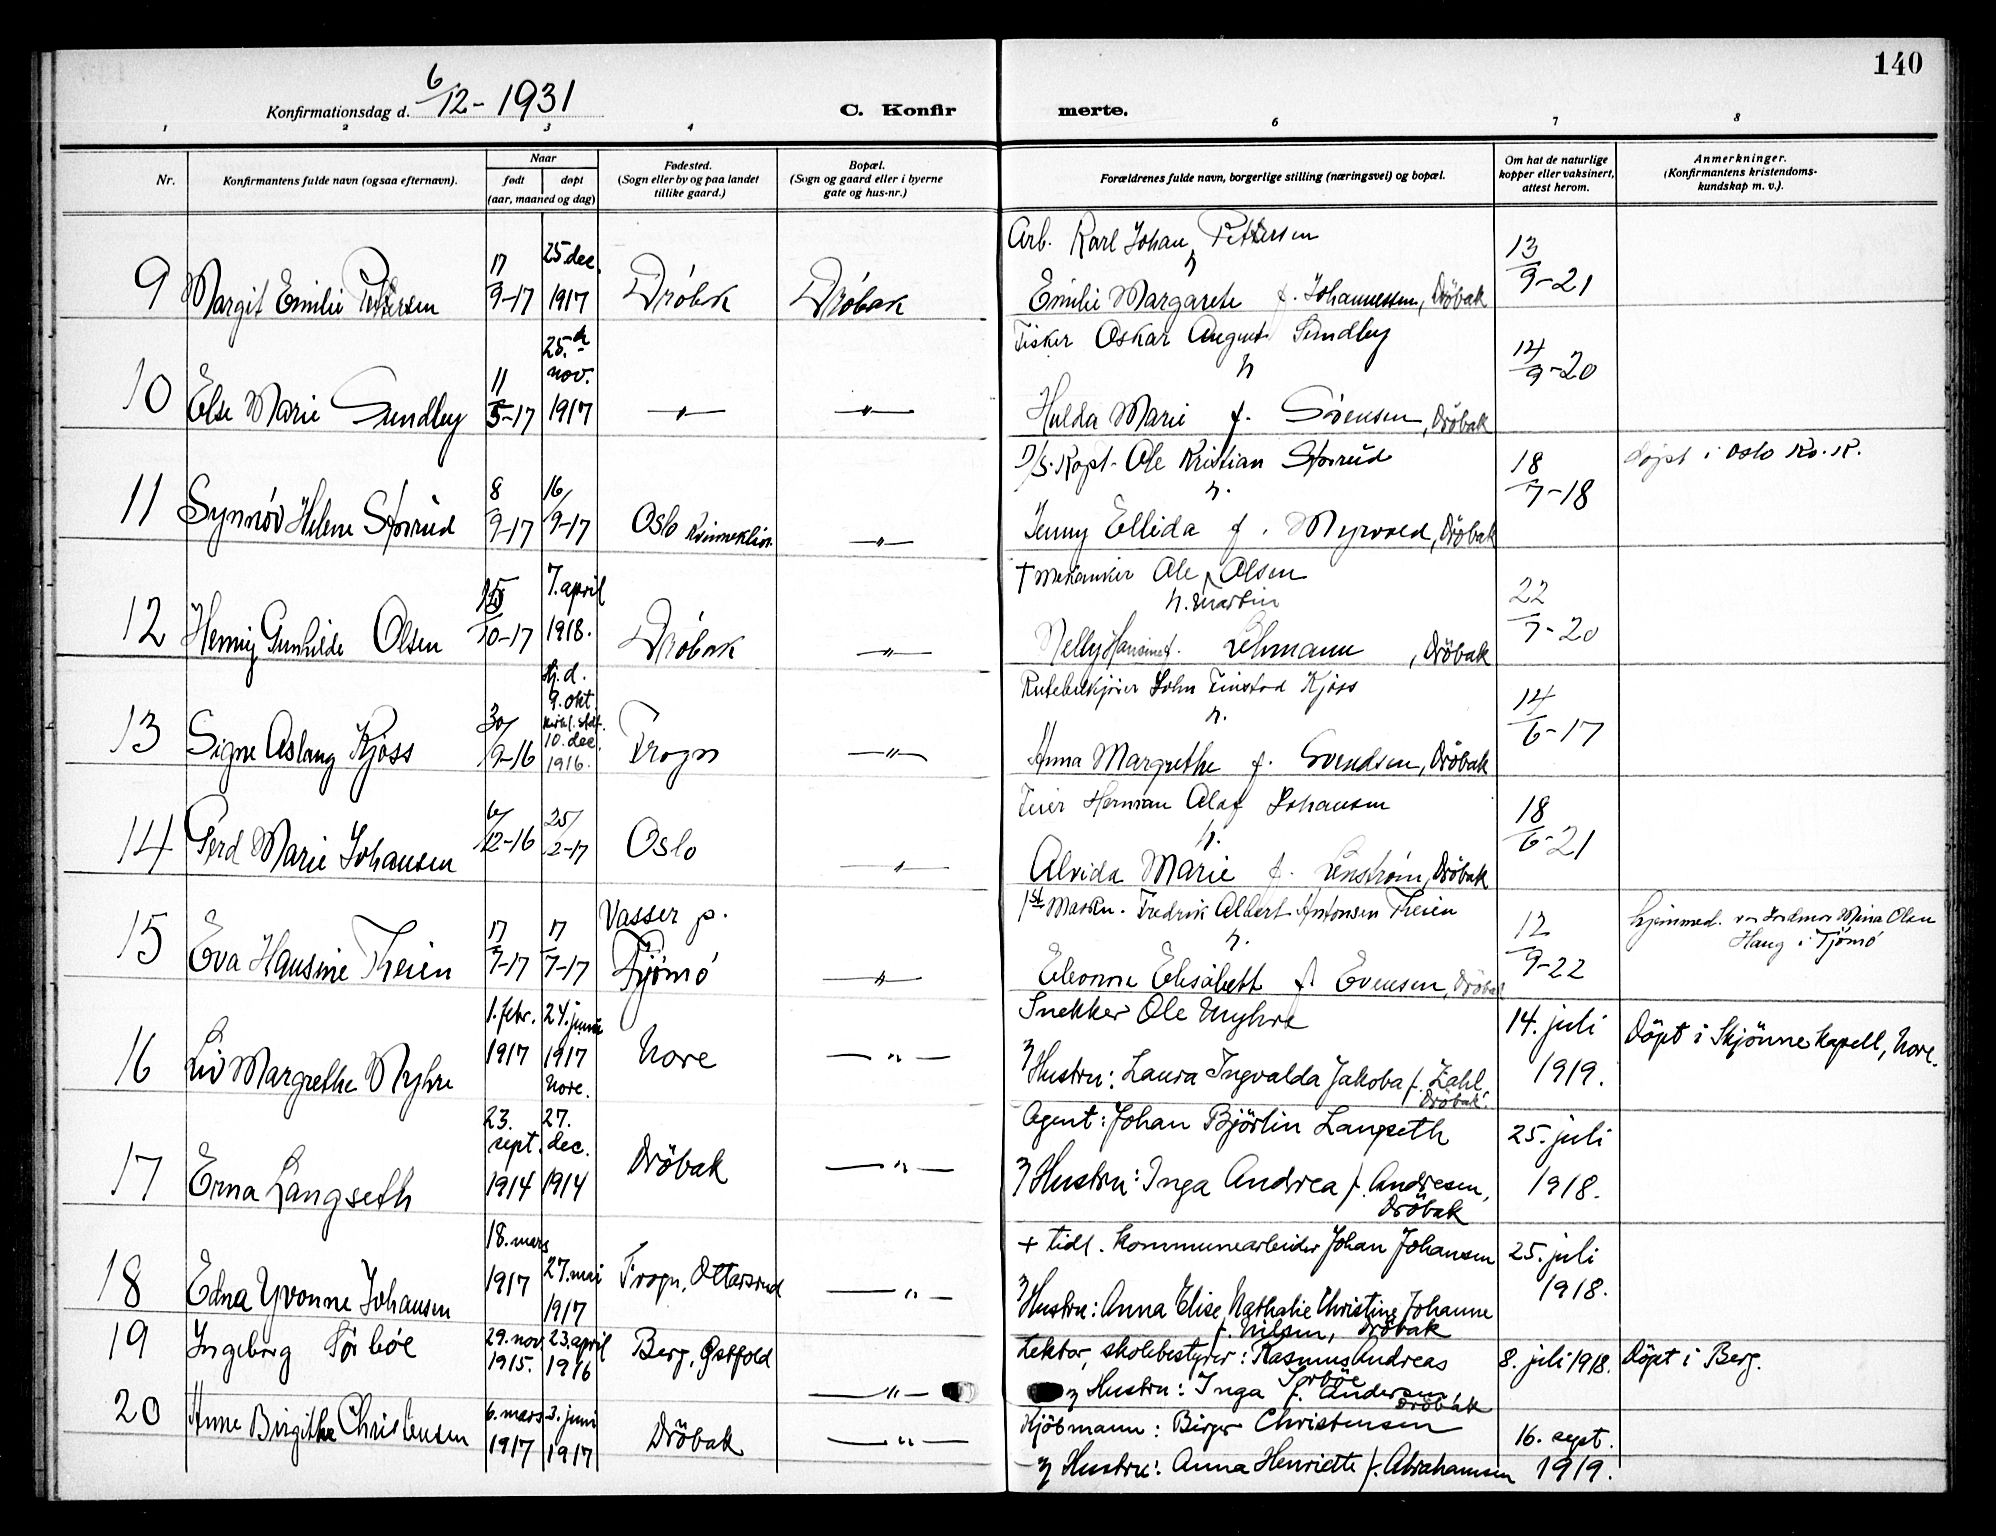 140
Konfirmationsdag d. 6/12 - 1931
C. Konfirmerte.
1 2 3 4 6 7 8
Nr.
Konfirmantens fulde navn (ogsaa efternavn).
Naar
født døpt
(aar, maaned og dag)
Fødested.
(Sogn eller by og paa landet
tillike gaard.)
Bopæl.
(Sogn og gaard eller i byerne
gate og hus-nr.)
Forældrenes fulde navn, borgerlige stilling (næringsvei) og bopæl.
Om hat de naturlige
kopper eller vaksinert,
attest herom.
Anmerkninger.
(Konfirmantens kristendoms-
kundskap m. v.).
Arb. Karl Johan Pettersen
9 Margit Emilie Pettersen 17/9-17 25 dec. 1917 Dröbak Dröbak
Emilie Margarete f. Johannessen, Dröbak 13/9-21
Fisker Oskar August Sundby
10 Else Marie Sundby 11/5-17 25. nov. 1917 —"— —"—
Hulda Marie f. Sörensen, Dröbak 14/9-20
D/S. Kapt. Ole Kristian Storrud
11 Synnöv Helene Storrud 8/9-17 16/9-17 Oslo Kvinneklin. —"—
Jenny Ellida f. Myrvold, Dröbak 18/7-18 Döpt i Oslo Kv. K.
† Mekaniker Ole Olsen
h. Martin
12 Henny Gunhilde Olsen 15/10-17 7. april 1918. Dröbak —"—
Nelly Hansine f. Lehmann, Dröbak 22/7-20
Rutebilkjörer John Finstad Kjöss
13 Signe Aslaug Kjöss 30/9-16 Hj. d. 9. okt. kirkl. stdf. 10. dec. 1916. Frogn —"—
Anna Margrethe f. Svendsen, Dröbak 14/6-17
Feier Herman Olaf Johansen
14 Gerd Marie Johansen 6/12-16 25/2-17 Oslo —"—
Alvida Marie f. Lenström, Dröbak 18/6-21
1st Mask. Fredrik Albert Antonsen Theien
15 Eva Hansine Theien 17/7-17 17/7-17 Vasser p. Tjömö —"—
Eleonore Elisabeth f. Evensen, Dröbak 12/9-22 hjemmed. v. Jordmor Mina Olsen
Haug i Tjömö
Snekker Ole Myhre
16 Liv Margrethe Myhre 1. febr. 1917 24. juni 1917 Nore. Nore —"—
Hustru: Laura Ingvalda Jakoba f. Zahl, Dröbak. 14. juli 1919. Döpt i Skjönne Kapell, Nore.
Agent: Johan Björlin Langseth
17 Erna Langseth 23. sept. 1914 27. dec. 1914 Dröbak —"—
Hustru: Inga Andrea f. Andresen, Dröbak 25. juli 1918.
+ tidl. kommunearbeider Johan Johansen
18 Edna Yvonne Johansen 18. mars 1917 27. mai 1917 Frogn, Ottarsrud —"—
Hustru: Anna Elise Nathalie Christine Johanne
f. Nilsen, Dröbak 25. juli 1918.
19 Ingeborg Sörböe 29. nov. 1915. 23. april 1916 Berg, Østfold —"—
Lektor, skolebestyrer: Rasmus Andreas Sörböe
Hustru: Inga f. Andersen Dröbak 8. juli 1918. Döpt i Berg.
20 Anne Birgithe Christensen 6. mars 1917 3. juni 1917 Dröbak —"—
Kjöbmann: Birger Christensen
Hustru: Anna Henriette f. Abrahamsen 16. sept. 1919.